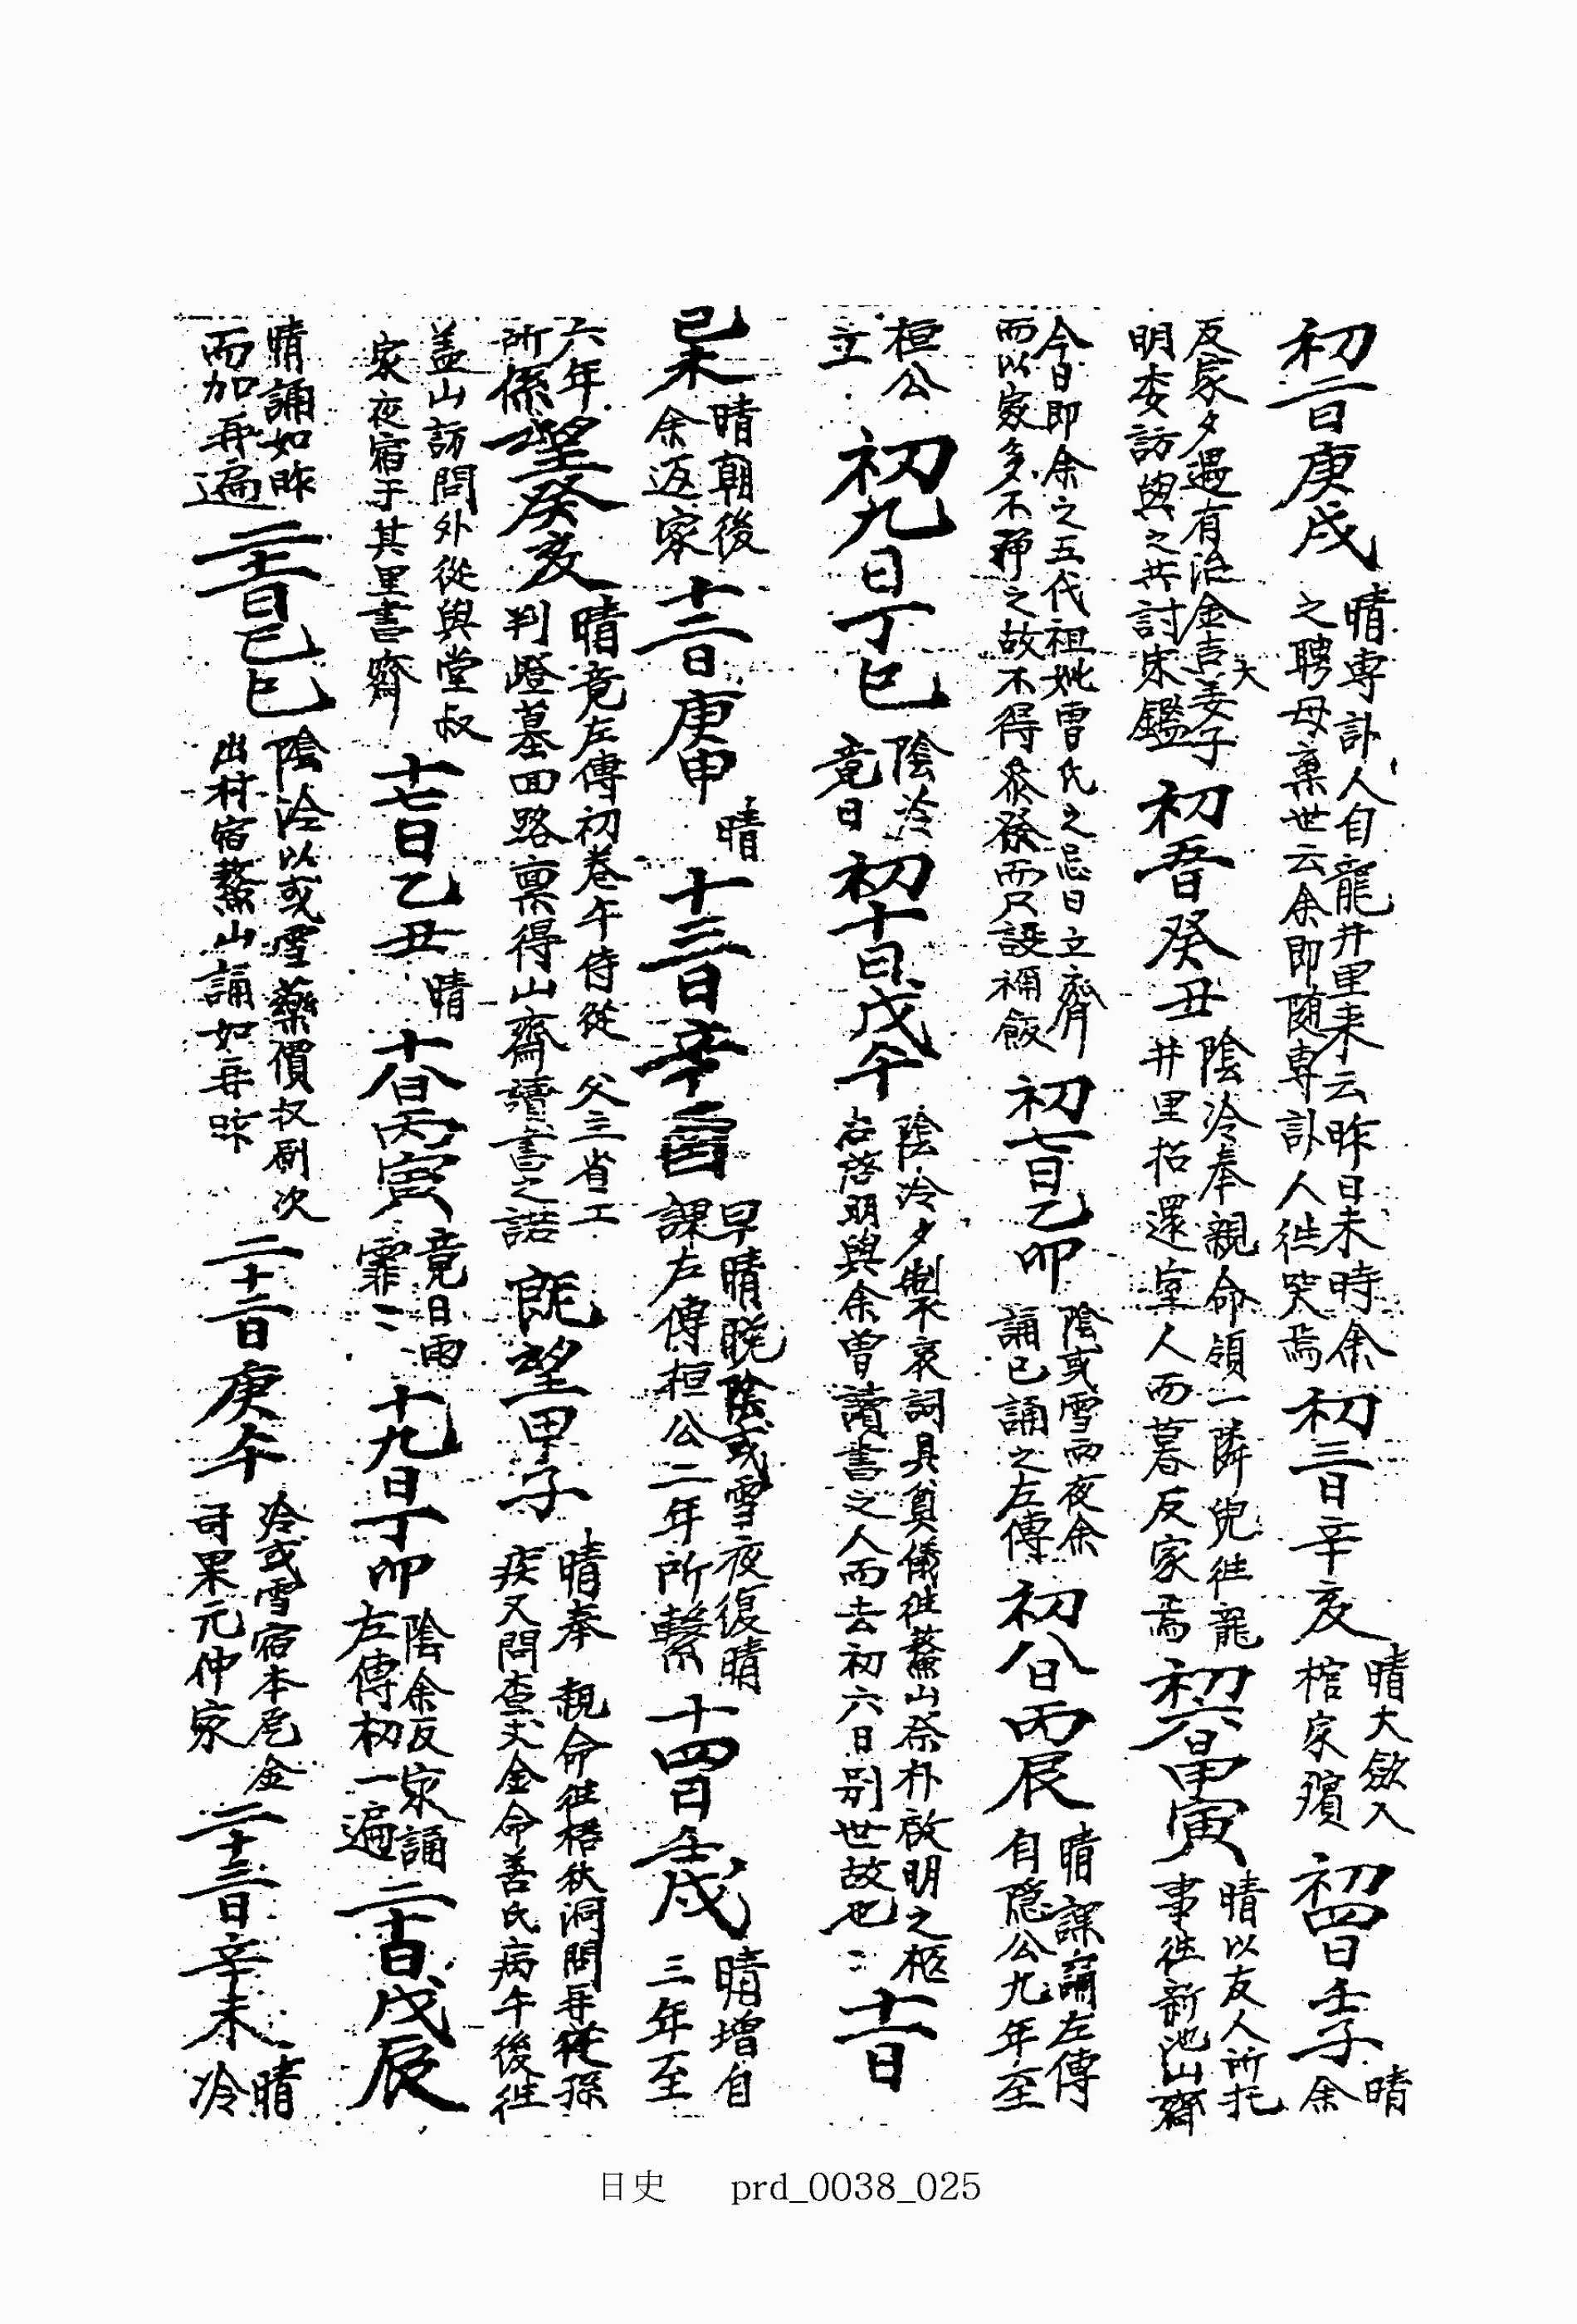 初二日庚戌 晴專訃人自龍井里来云昨日未時余
之聘母棄世云余即随專訃人往哭焉 初三日辛亥 晴大斂入
棺家殯 初四日壬子 晴余
反家夕還有治金吉姜子
明委訪與之共討宋鑑 初五日癸丑 陰冷奉親命領一隣兒往龍
井里招還室人而暮反家焉 初六日甲寅 晴以友人所托
事往新池山齋
今日即余之五代祖妣曺氏之忌日立齊
而以家多不淨之故不得叅祭而只設補飯 初七日乙卯 陰或雪雨夜余
誦已誦之左傳 初八日丙辰 晴課誦左傳
自隱公九年至
桓公
立 初九日丁巳 陰冷
竟日 初十日戊午 陰冷夕製哀詞具奠儀往鰲山祭朴啟明之柩
右啓明與余曾讀書之人而去初六日別世故也 十一日
己未 晴朝後
余返家 十二日庚申 晴 十三日辛酉 早晴晩陰或雪夜復晴
課左傳桓公二年所繫 十四日壬戌 晴增自
三年至
六年
所係 望癸亥 晴竟左傳初卷午侍從 父三省工
判隥墓回路稟得山齋讀書之諾 旣望甲子 晴奉 親命往梧秋洞問再從孫
疾又問查丈金命善氏病午後往
盖山訪問外從與堂叔
家夜宿于其里書齋 十七日乙丑 晴 十八日丙寅 竟日雨
霏〻 十九日丁卯 陰余反家誦
左傳初一遍 二十日戊辰
晴誦如昨
而加再遍 二十一日己巳 陰冷以或雪藥價权刷次
出村宿鰲山誦如再昨 二十二日庚午 冷或雪宿本邑金
司果元仲家 二十三日辛未 晴
冷
日史 prd_0038_025